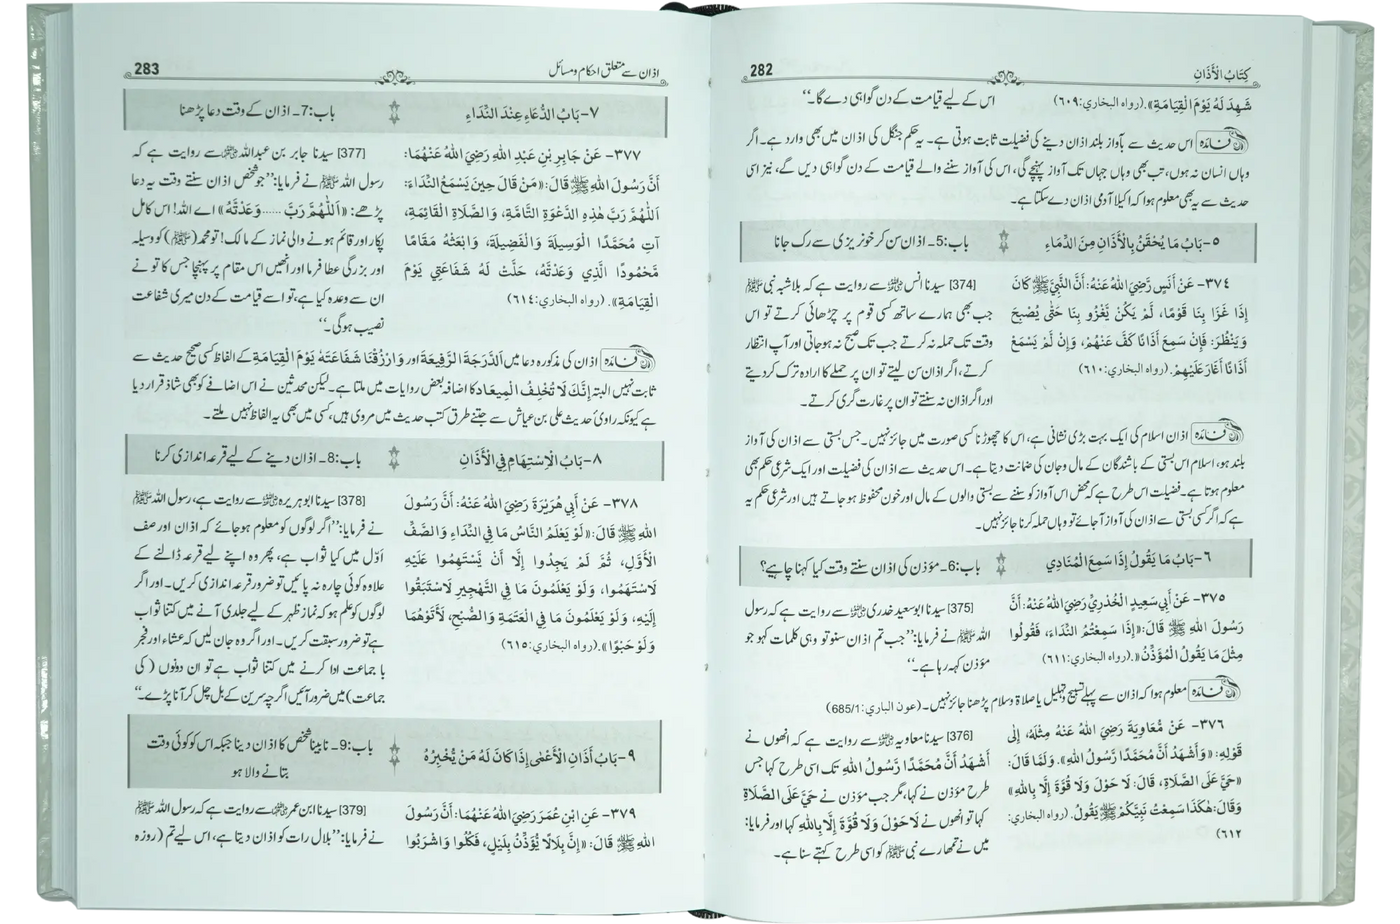 كِتَابُ الْأَذَانِ
282
شَهِدَ لَهُ يَوْمَ الْقِيَامَةِ». (رواه البخاري: ٦٠٩)
اس کے لیے قیامت کے دن گواہی دے گا۔‘‘
فائدہ اس حدیث سے بآواز بلند اذان دینے کی فضیلت ثابت ہوتی ہے۔ یہ حکم جنگل کی اذان میں بھی وارد ہے۔ اگر
وہاں انسان نہ ہوں، تب بھی وہاں جہاں تک آواز پہنچے گی، اس کی آواز سننے والے قیامت کے دن گواہی دیں گے، نیز اسی
حدیث سے یہ بھی معلوم ہوا کہ اکیلا آدمی اذان دے سکتا ہے۔
٥- بَابُ مَا يُحْقَنُ بِالْأَذَانِ مِنَ الدِّمَاءِ
باب: 5۔ اذان سن کر خونریزی سے رک جانا
٣٧٤- عَنْ أَنَسٍ رَضِيَ اللهُ عَنْهُ: أَنَّ النَّبِيَّ ﷺ كَانَ
إِذَا غَزَا بِنَا قَوْمًا، لَمْ يَكُنْ يَغْزُو بِنَا حَتَّى يُصْبِحَ
وَيَنْظُرَ: فَإِنْ سَمِعَ أَذَانًا كَفَّ عَنْهُمْ، وَإِنْ لَمْ يَسْمَعْ
أَذَانًا أَغَارَ عَلَيْهِمْ. (رواه البخاري: ٦١٠)
[374] سیدنا انس ؓ سے روایت ہے کہ بلاشبہ نبی ﷺ
جب بھی ہمارے ساتھ کسی قوم پر چڑھائی کرتے تو اس
وقت تک حملہ نہ کرتے جب تک صبح نہ ہو جاتی اور آپ انتظار
کرتے، اگر اذان سن لیتے تو ان پر حملے کا ارادہ ترک کر دیتے
اور اگر اذان نہ سنتے تو ان پر غارت گری کرتے۔
فائدہ اذان اسلام کی ایک بہت بڑی نشانی ہے، اس کا چھوڑنا کسی صورت میں جائز نہیں۔ جس بستی سے اذان کی آواز
بلند ہو، اسلام اس بستی کے باشندگان کے مال وجان کی ضمانت دیتا ہے۔ اس حدیث سے اذان کی فضیلت اور ایک شرعی حکم بھی
معلوم ہوتا ہے۔ فضیلت اس طرح ہے کہ محض اس آواز کو سننے سے بستی والوں کے مال اور خون محفوظ ہو جاتے ہیں اور شرعی حکم یہ
ہے کہ اگر کسی بستی سے اذان کی آواز آجائے تو وہاں حملہ کرنا جائز نہیں۔
٦- بَابُ مَا يَقُولُ إِذَا سَمِعَ الْمُنَادِي
باب: 6۔ مؤذن کی اذان سنتے وقت کیا کہنا چاہیے؟
٣٧٥- عَنْ أَبِي سَعِيدٍ الْخُدْرِيِّ رَضِيَ اللهُ عَنْهُ: أَنَّ
رَسُولَ اللهِ ﷺ قَالَ: «إِذَا سَمِعْتُمُ النِّدَاءَ، فَقُولُوا
مِثْلَ مَا يَقُولُ الْمُؤَذِّنُ». (رواه البخاري: ٦١١)
[375] سیدنا ابو سعید خدری ؓ سے روایت ہے کہ رسول
اللہ ﷺ نے فرمایا: ’’جب تم اذان سنو تو وہی کلمات کہو جو
مؤذن کہہ رہا ہے۔‘‘
فائدہ معلوم ہوا کہ اذان سے پہلے تسبیح وتہلیل یا صلاۃ وسلام پڑھنا جائز نہیں۔ (عون الباري: 685/1)
٣٧٦- عَنْ مُعَاوِيَةَ رَضِيَ اللهُ عَنْهُ مِثْلَهُ، إِلَى
قَوْلِهِ: «وَأَشْهَدُ أَنَّ مُحَمَّدًا رَسُولُ اللهِ». وَلَمَّا قَالَ:
«حَيَّ عَلَى الصَّلَاةِ، قَالَ: لَا حَوْلَ وَلَا قُوَّةَ إِلَّا بِاللهِ»
وَقَالَ: هٰكَذَا سَمِعْتُ نَبِيَّكُمْ ﷺ يَقُولُ. (رواه البخاري:
٦١٢)
[376] سیدنا معاویہ ؓ سے روایت ہے کہ انھوں نے
أَشْهَدُ أَنَّ مُحَمَّدًا رَّسُولُ اللهِ تک اسی طرح کہا جس
طرح مؤذن نے کہا، مگر جب مؤذن نے حَيَّ عَلَى الصَّلَاةِ
کہا تو انھوں نے لَا حَوْلَ وَلَا قُوَّةَ إِلَّا بِاللهِ کہا اور فرمایا:
میں نے تمھارے نبی ﷺ کو اسی طرح کہتے سنا ہے۔
اذان سے متعلق احکام ومسائل
283
٧- بَابُ الدُّعَاءِ عِنْدَ النِّدَاءِ
باب: 7۔ اذان کے وقت دعا پڑھنا
٣٧٧- عَنْ جَابِرِ بْنِ عَبْدِ اللهِ رَضِيَ اللهُ عَنْهُمَا:
أَنَّ رَسُولَ اللهِ ﷺ قَالَ: «مَنْ قَالَ حِينَ يَسْمَعُ النِّدَاءَ:
اَللّٰهُمَّ رَبَّ هٰذِهِ الدَّعْوَةِ التَّامَّةِ، وَالصَّلَاةِ الْقَائِمَةِ،
آتِ مُحَمَّدًا الْوَسِيلَةَ وَالْفَضِيلَةَ، وَابْعَثْهُ مَقَامًا
مَحْمُودًا الَّذِي وَعَدْتَهُ، حَلَّتْ لَهُ شَفَاعَتِي يَوْمَ
الْقِيَامَةِ». (رواه البخاري: ٦١٤)
[377] سیدنا جابر بن عبداللہ ؓ سے روایت ہے کہ
رسول اللہ ﷺ نے فرمایا: ’’جو شخص اذان سنتے وقت یہ دعا
پڑھے: «اَللّٰهُمَّ رَبَّ ...... وَعَدْتَهُ» اے اللہ! اس کامل
پکار اور قائم ہونے والی نماز کے مالک! تو محمد (ﷺ) کو وسیلہ
اور بزرگی عطا فرما اور انھیں اس مقام پر پہنچا جس کا تو نے
ان سے وعدہ کیا ہے، تو اسے قیامت کے دن میری شفاعت
نصیب ہوگی۔‘‘
فائدہ اذان کی مذکورہ دعا میں اَلدَّرَجَةَ الرَّفِيعَةَ اور وَارْزُقْنَا شَفَاعَتَهُ يَوْمَ الْقِيَامَةِ کے الفاظ کسی صحیح حدیث سے
ثابت نہیں البتہ إِنَّكَ لَا تُخْلِفُ الْمِيعَاد کا اضافہ بعض روایات میں ملتا ہے۔ لیکن محدثین نے اس اضافے کو بھی شاذ قرار دیا
ہے کیونکہ راویٔ حدیث علی بن عیاش سے جتنے طرق کتب حدیث میں مروی ہیں، کسی میں بھی یہ الفاظ نہیں ملتے۔
٨- بَابُ الْاِسْتِهَامِ فِي الْأَذَانِ
باب: 8۔ اذان دینے کے لیے قرعہ اندازی کرنا
٣٧٨- عَنْ أَبِي هُرَيْرَةَ رَضِيَ اللهُ عَنْهُ: أَنَّ رَسُولَ
اللهِ ﷺ قَالَ: «لَوْ يَعْلَمُ النَّاسُ مَا فِي النِّدَاءِ وَالصَّفِّ
الْأَوَّلِ، ثُمَّ لَمْ يَجِدُوا إِلَّا أَنْ يَسْتَهِمُوا عَلَيْهِ
لَاسْتَهَمُوا، وَلَوْ يَعْلَمُونَ مَا فِي التَّهْجِيرِ لَاسْتَبَقُوا
إِلَيْهِ، وَلَوْ يَعْلَمُونَ مَا فِي الْعَتَمَةِ وَالصُّبْحِ، لَأَتَوْهُمَا
وَلَوْ حَبْوًا». (رواه البخاري: ٦١٥)
[378] سیدنا ابو ہریرہ ؓ سے روایت ہے، رسول اللہ ﷺ
نے فرمایا: ’’اگر لوگوں کو معلوم ہو جائے کہ اذان اور صف
اوّل میں کیا ثواب ہے، پھر وہ اپنے لیے قرعہ ڈالنے کے
علاوہ کوئی چارہ نہ پائیں تو ضرور قرعہ اندازی کریں۔ اور اگر
لوگوں کو علم ہو کہ نماز ظہر کے لیے جلدی آنے میں کتنا ثواب
ہے تو ضرور سبقت کریں۔ اور اگر وہ جان لیں کہ عشاء اور فجر
با جماعت ادا کرنے میں کتنا ثواب ہے تو ان دونوں (کی
جماعت) میں ضرور آئیں اگرچہ سرین کے بل چل کر آنا پڑے۔‘‘
٩- بَابُ أَذَانِ الْأَعْمَى إِذَا كَانَ لَهُ مَنْ يُخْبِرُهُ
باب: 9۔ نابینا شخص کا اذان دینا جبکہ اس کو کوئی وقت
بتانے والا ہو
٣٧٩- عَنِ ابْنِ عُمَرَ رَضِيَ اللهُ عَنْهُمَا: أَنَّ رَسُولَ
اللهِ ﷺ قَالَ: «إِنَّ بِلَالًا يُؤَذِّنُ بِلَيْلٍ، فَكُلُوا وَاشْرَبُوا
[379] سیدنا ابن عمر ؓ سے روایت ہے کہ رسول اللہ ﷺ
نے فرمایا: ’’بلال رات کو اذان دیتا ہے، اس لیے تم (روزہ